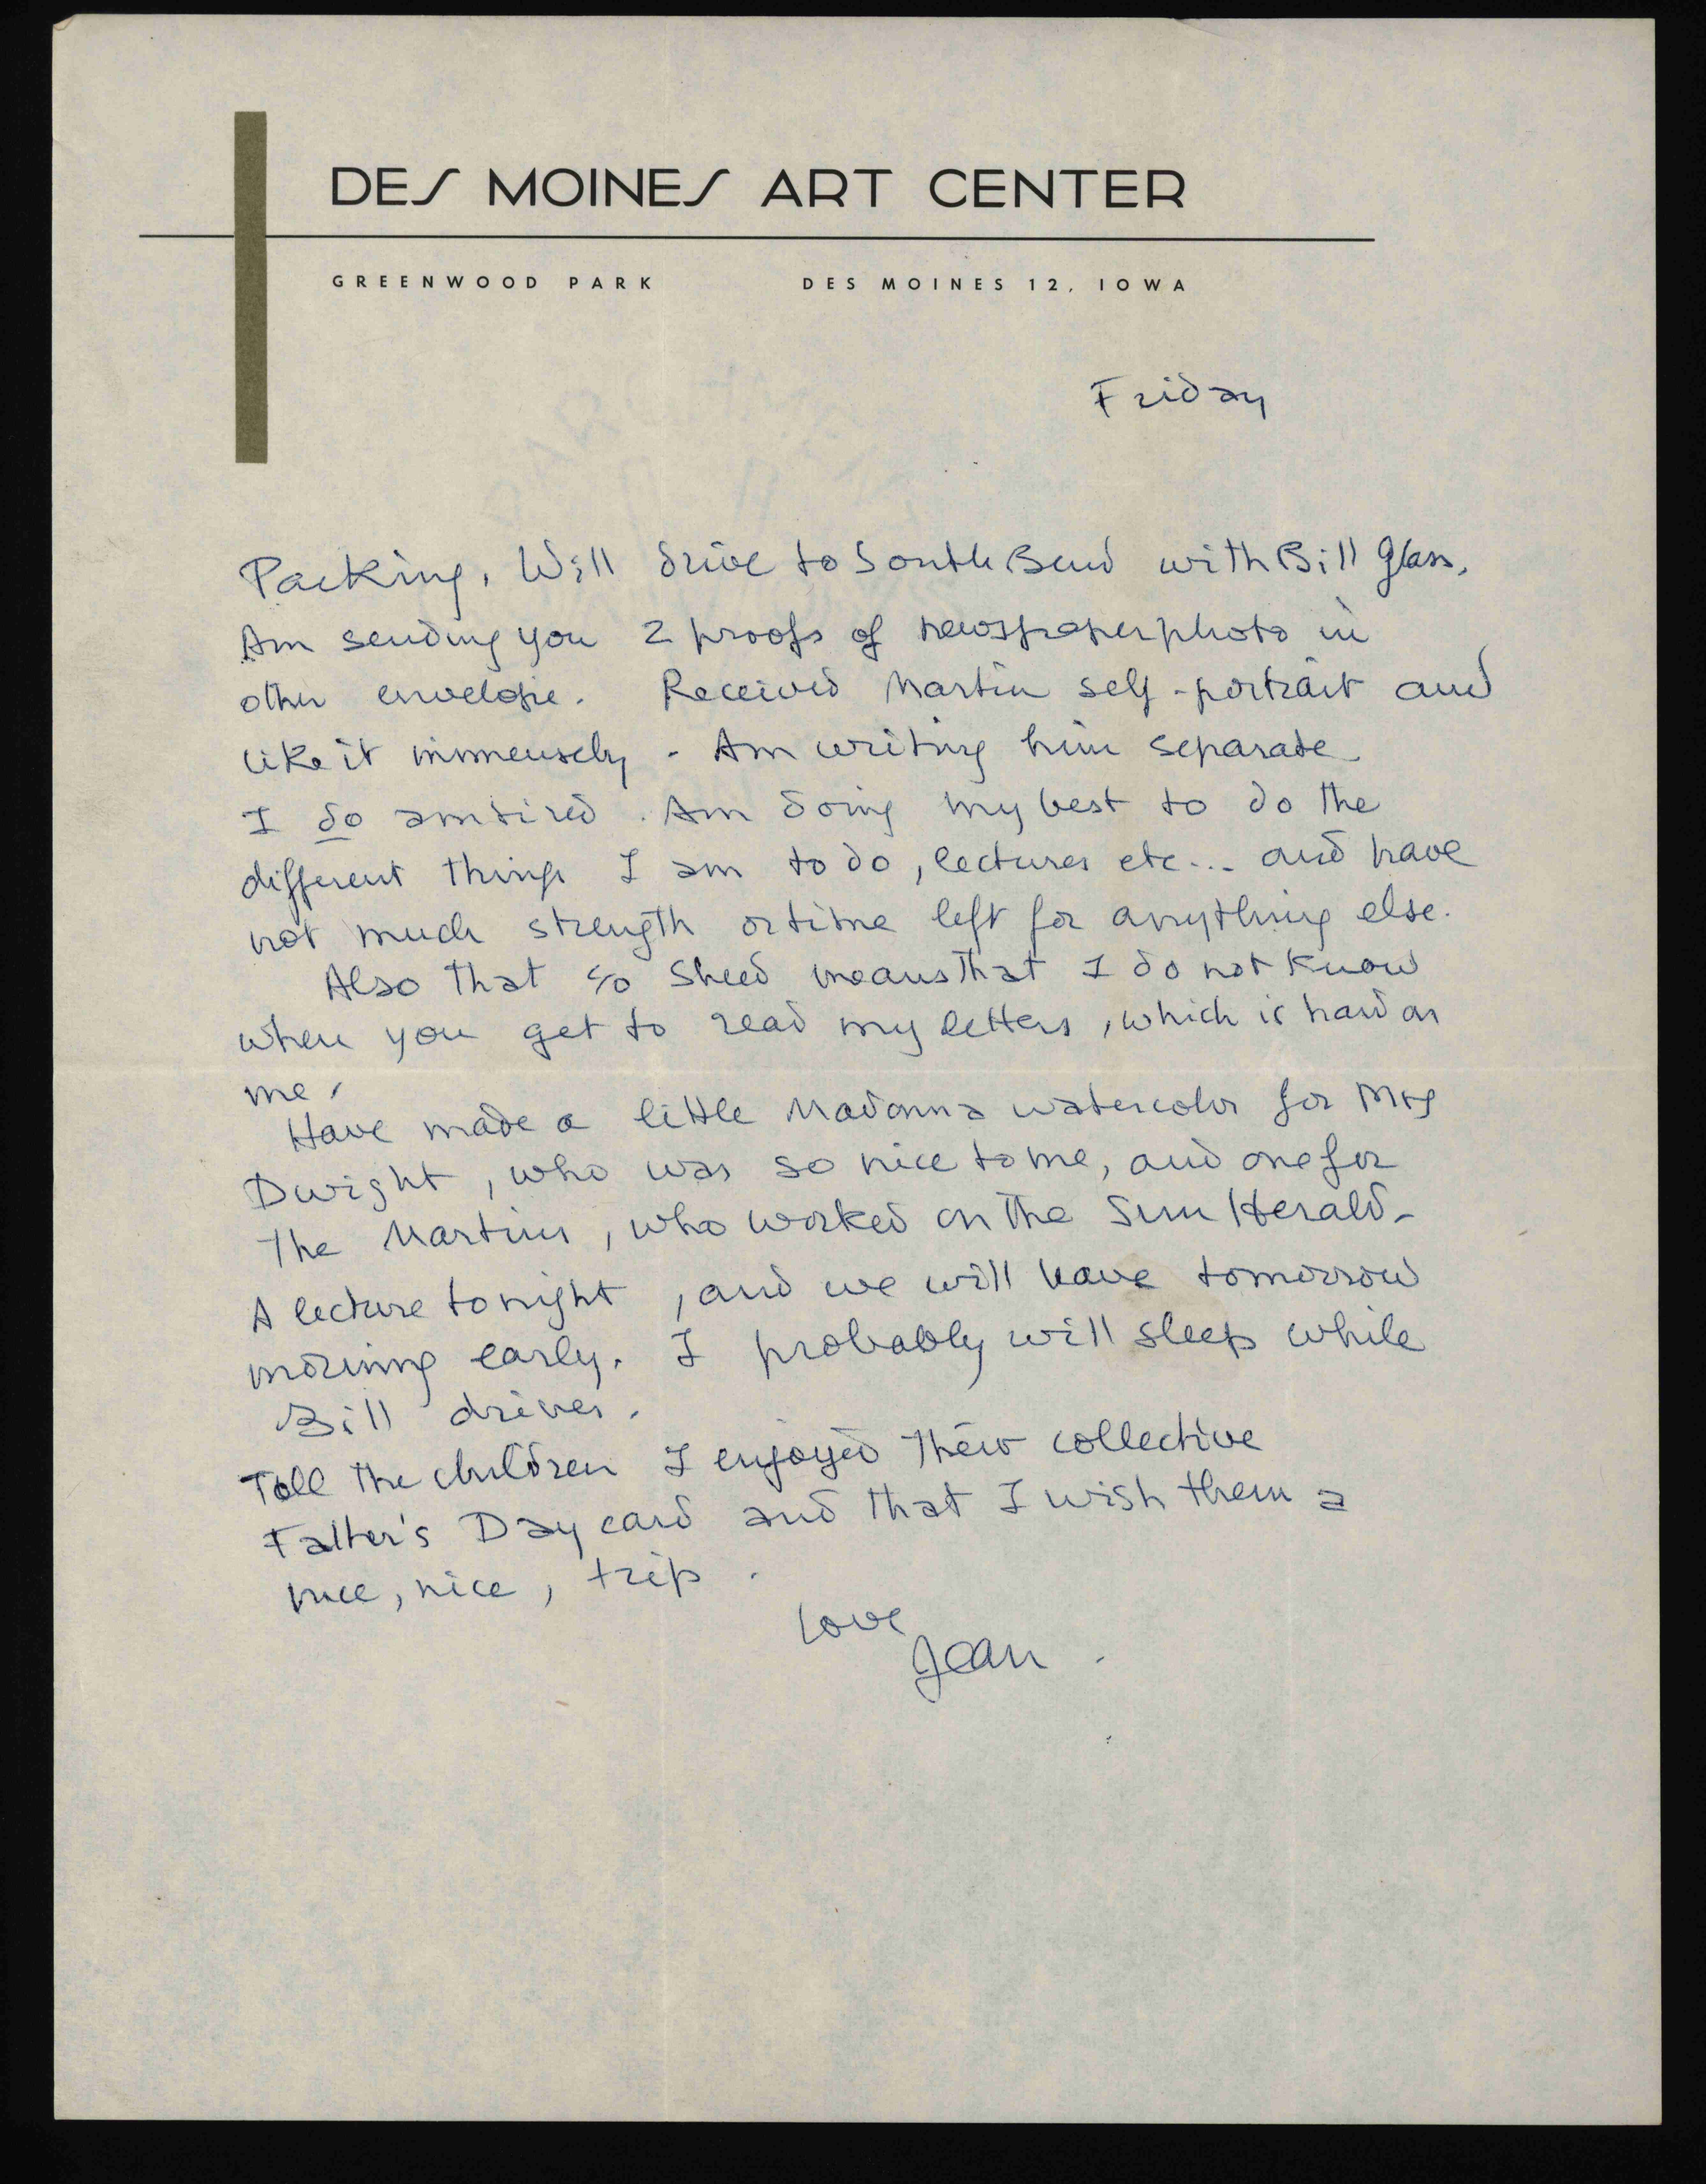 DES MOINES ART CENTER
GREENWOOD PARK DES MOINES 12, IOWA
Friday
Packing. Will drive to South Bend with Bill Glass.
Am sending you 2 proofs of newspaperphoto in
other envelope. Received Martin self-portrait and
like it immensely - Am writing him separate.
I do am tired. Am doing my best to do the
different things I am to do, lectures etc... and have
not much strength or time left for anything else.
Also that c/o Sheed means that I do not know
when you get to read my letters, which is hard on
me.
Have made a little Madonna watercolor for Mrs
Dwight, who was so nice to me, and one for
the Martins, who worked on the Sun Herald -
A lecture tonight, and we will leave tomorrow
morning early. I probably will sleep while
Bill drives.
Tell the children I enjoyed their collective
Father's Day card and that I wish them a
nice, nice, trip.
Love
Jean.